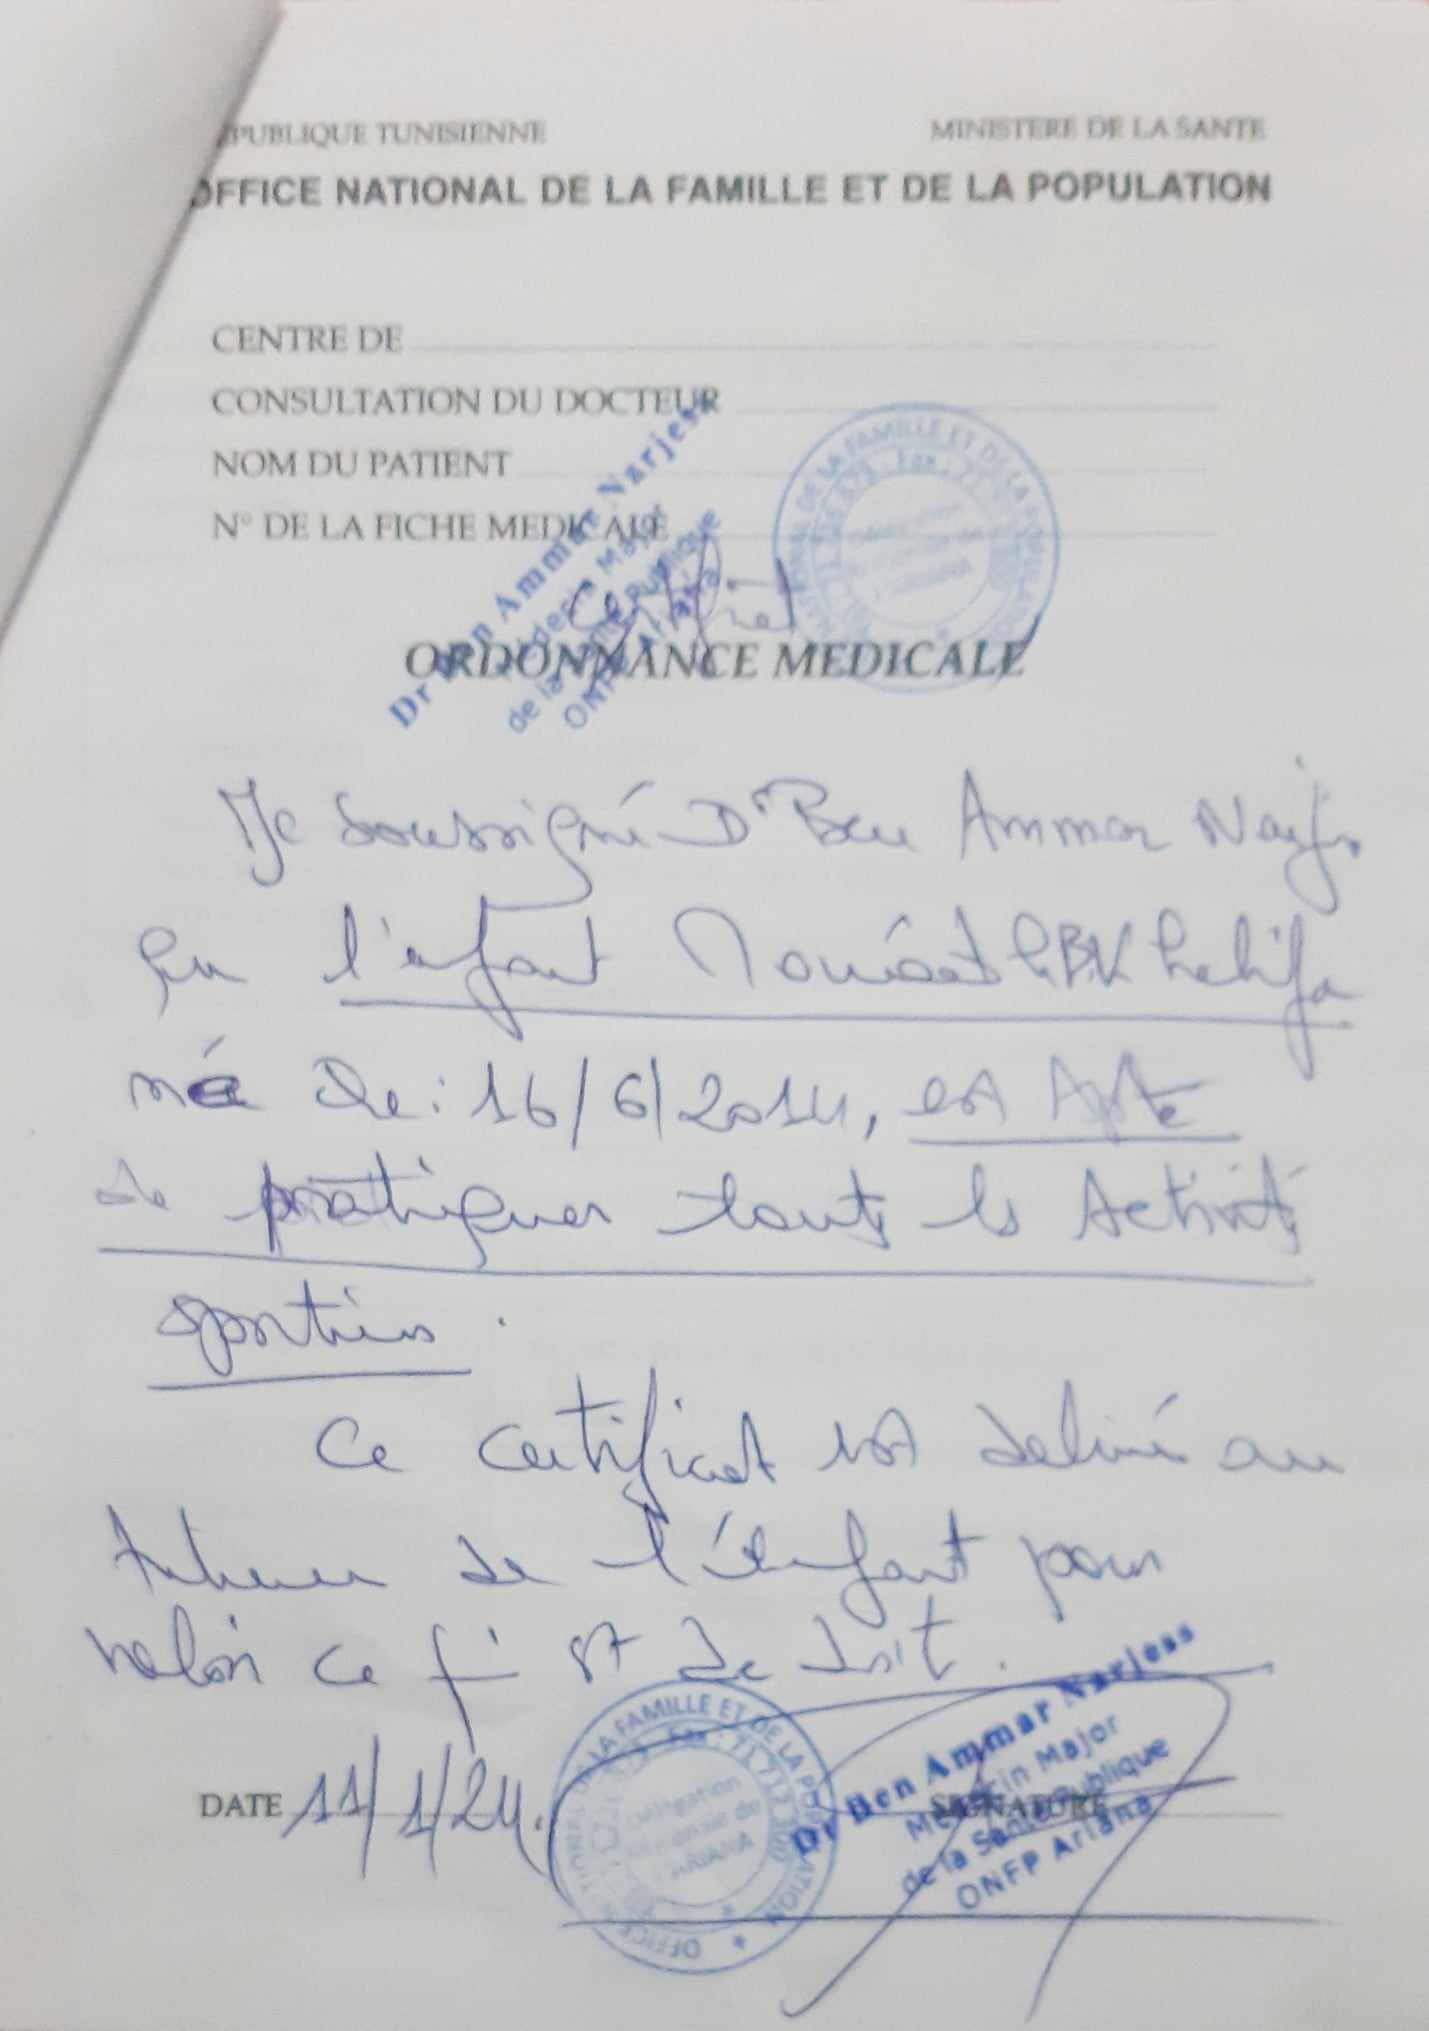 PUBLIQUE TUNISIENNE MINISTERE DE LA SANTE
OFFICE NATIONAL DE LA FAMILLE ET DE LA POPULATION
CENTRE DE
CONSULTATION DU DOCTEUR
NOM DU PATIENT
N° DE LA FICHE MEDICALE
Dr Ben Ammar Narjess
Médecin Major
de la Santé Publique
ONFP Ariana
ORDONNANCE MEDICALE
Je soussigné Dr Ben Ammar
l'enfant
né le : 16/6/2014, est Apte
de pratiquer touts les Activités
sportives.
Ce certificat est delivré au
de l'enfant pour
valoir ce q' st de droit.
DATE 11/1/24. SIGNATURE
OFFICE NATIONAL DE LA FAMILLE ET DE LA POPULATION
Délégation
ARIANA
Dr Ben Ammar Narjess
Médecin Major
de la Santé Publique
ONFP Ariana